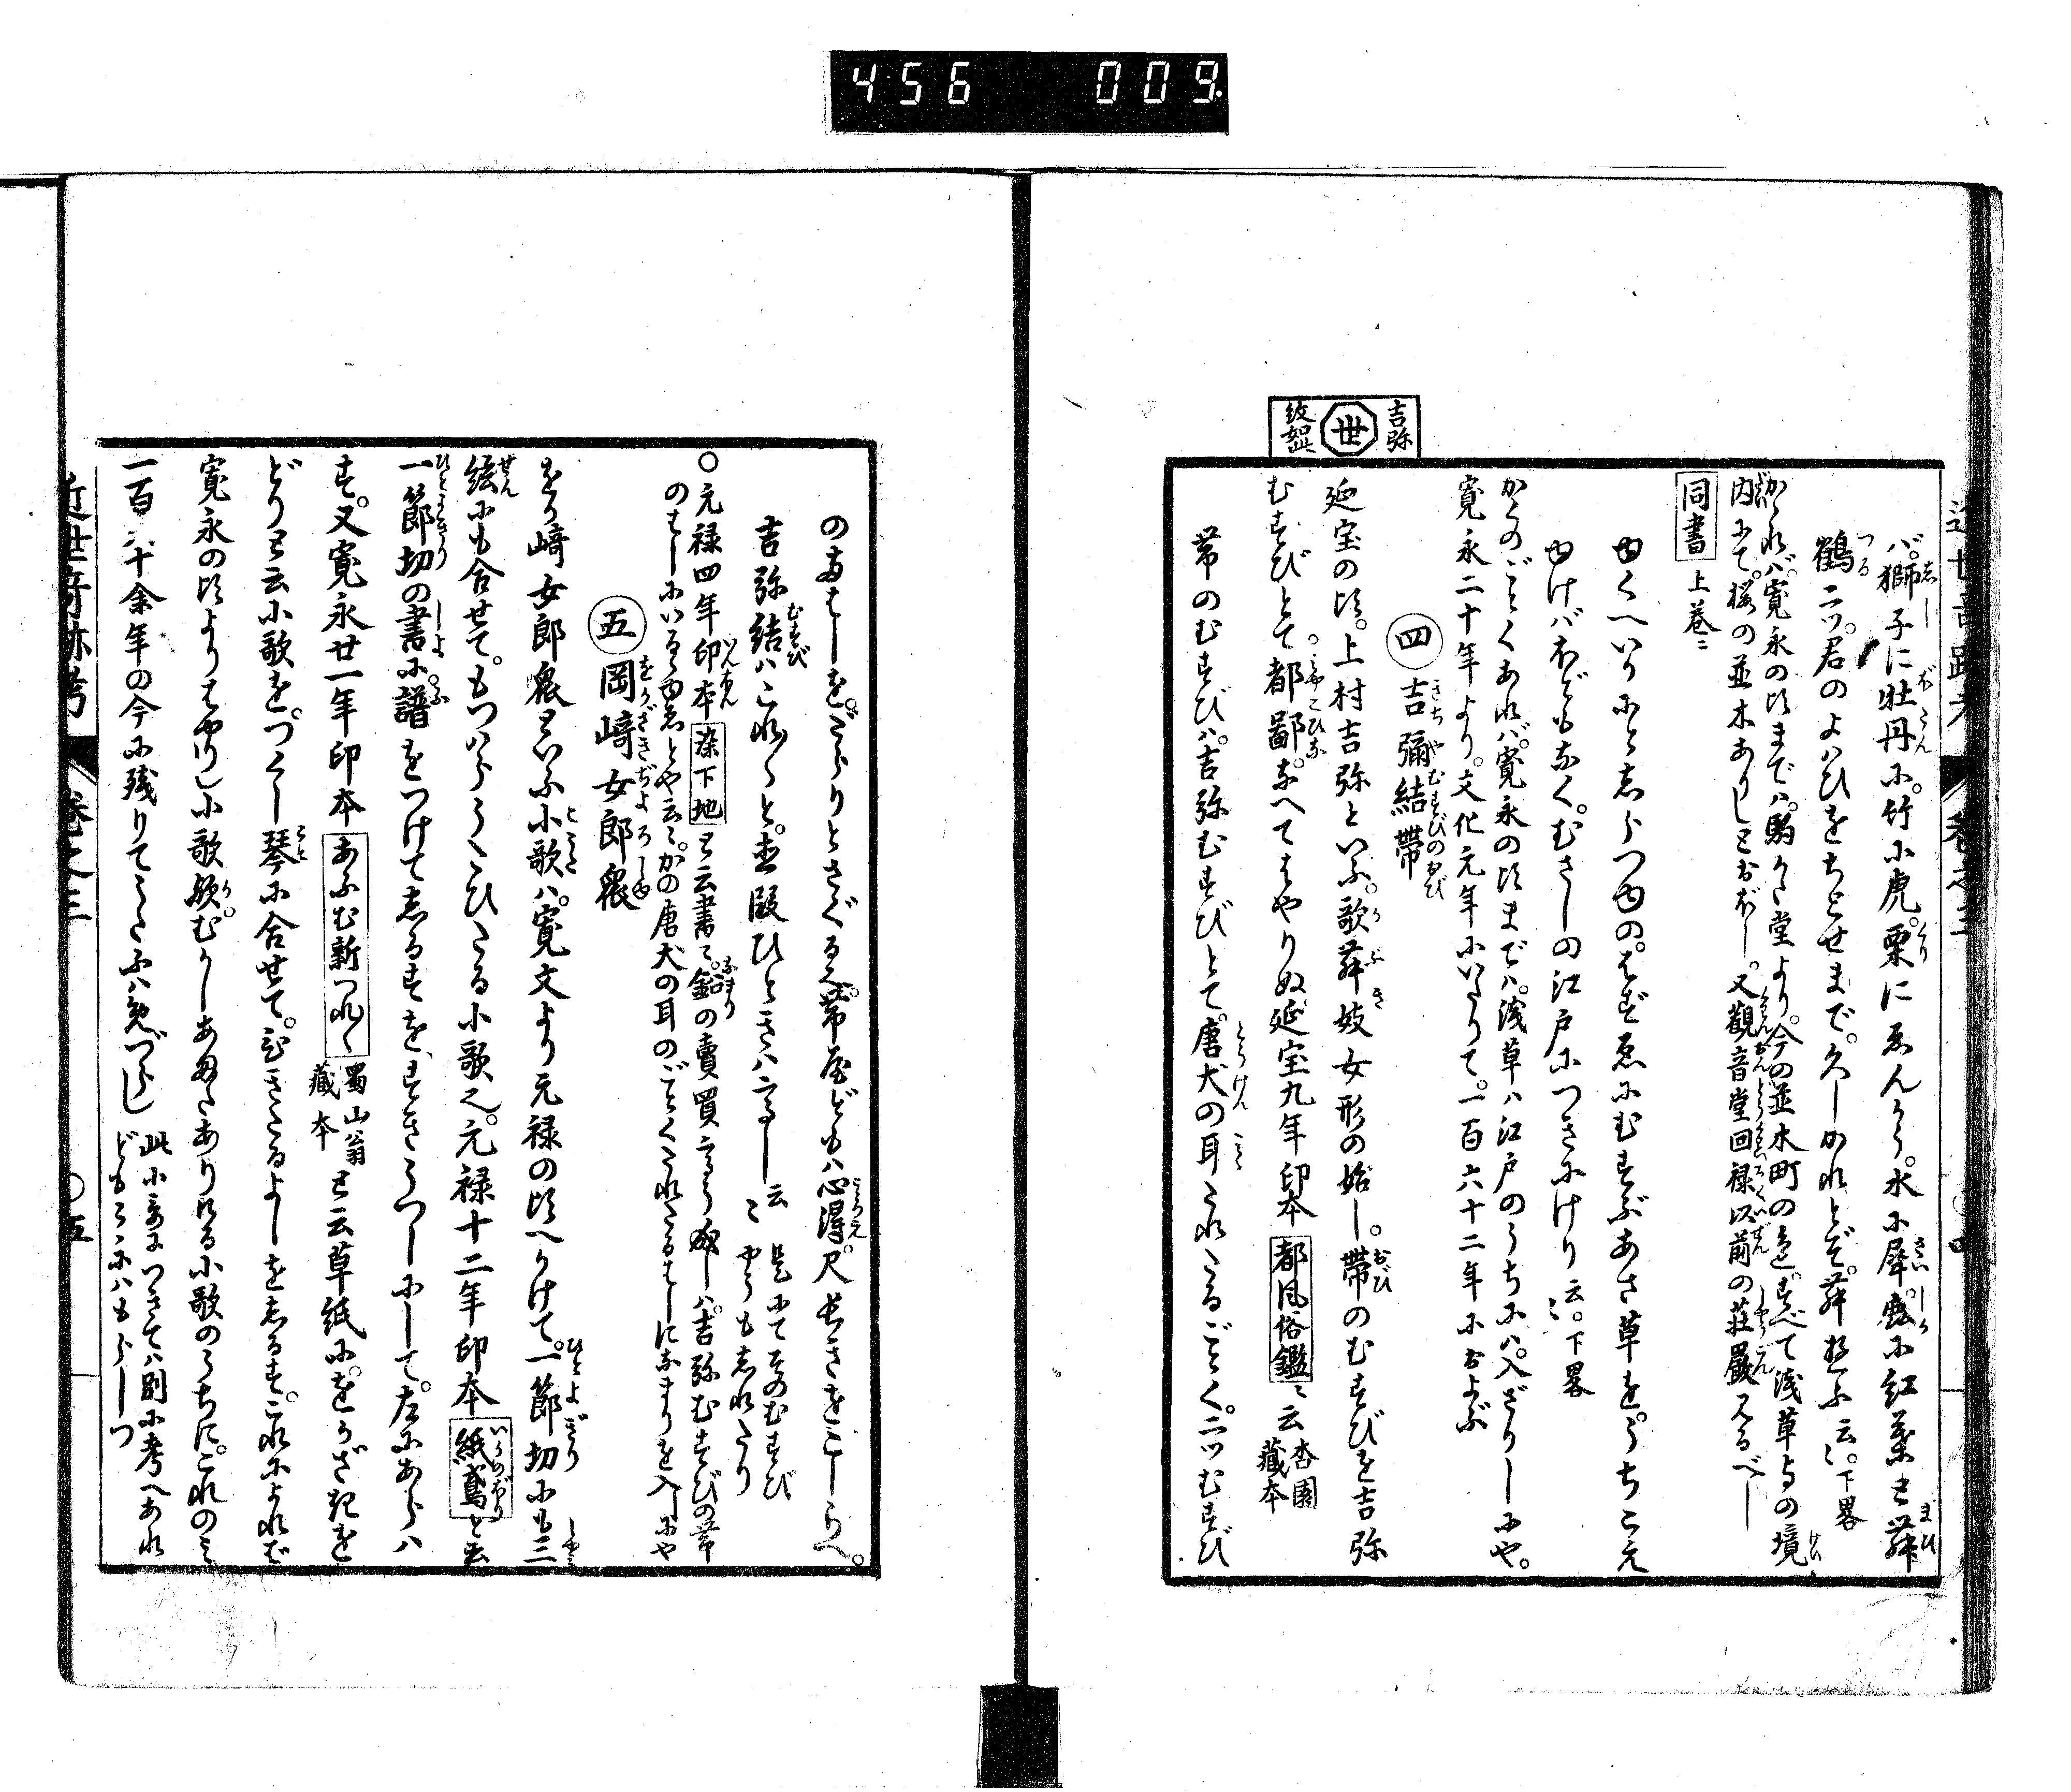 456 009
近世奇跡考 巻之三 ○四
ば。獅子に牡丹に。竹に虎。栗にゑんかう。水に犀。鹿に紅葉と舞
鶴二ツ。君のよはひをちとせまで。久しかれとぞ。舞遊ふ云〻。下畧
かゝれバ。寛永の頃までハ。駒かた堂より。今の並木町の邊。すべて浅草寺の境
内にて。桜の並木ありしとおぼし。又觀音堂回禄以前の荘嚴見るべし
同書 上巻ニ
ゆくへいかにとしらつゆの。はずゑにむすぶあさ草を。うちこえ
ゆけバほどもなく。むさしの江戸につきにけり 云〻。下畧
かくのごとくあれバ。寛永の頃までハ。浅草ハ江戸のうちにハ。入ざりしにや。
寛永二十年より。文化元年にいたりて。一百六十二年におよぶ
四 吉彌結帶
吉弥 世 紋如此
延宝の頃。上村吉弥といふ。歌舞妓女形の始し。帶のむすびを吉弥
むすびとて。都鄙。なへてはやりぬ延宝九年印本 都風俗鑑 ニ云 杏園藏本
帯のむすびハ。吉弥むすびとて。唐犬の耳たれたるごとく。二ツむすび
のあましを。だらりとさぐる故。帯屋どもハ心得。尺長きをこしらへ。
吉弥結ハこれ〳〵と。直段ひときハ高し 云〻 是にて其のむすびやうもしれたり
○元禄四年印本 染下地 と云書ニ。鉛の賣買高う成しハ。吉弥むすびの帯
のはしにいるゝゆゑとや云〻。かの唐犬の耳のごとくたれたるはしになまりを入しにや
五 岡崎女郎衆
をか崎女郎衆といふ小歌ハ。寛文より元禄の頃へかけて。一節切にも三
絃にも合せて。もつハらうたひたる小歌也。元禄十二年印本 紙鳶 と云
一節切の書に。譜をつけてしるすを、すきうつしにして。左にあらハ
す。又寛永廿一年印本 あふむ新つれ〳〵 蜀山翁藏本 と云草紙に。をかざきを
どりと云小歌を。つくし琴に合せて。ひきたるよしをしるす。これによれば
寛永の頃よりはやりし小歌歟。むかしあまたありける小歌のうちに。これのミ
一百六十余年の今に残りてうたふハめづらし 此小哥につきてハ別に考へあれどもこゝにハもらしつ
近世奇跡考 巻之三 ○五